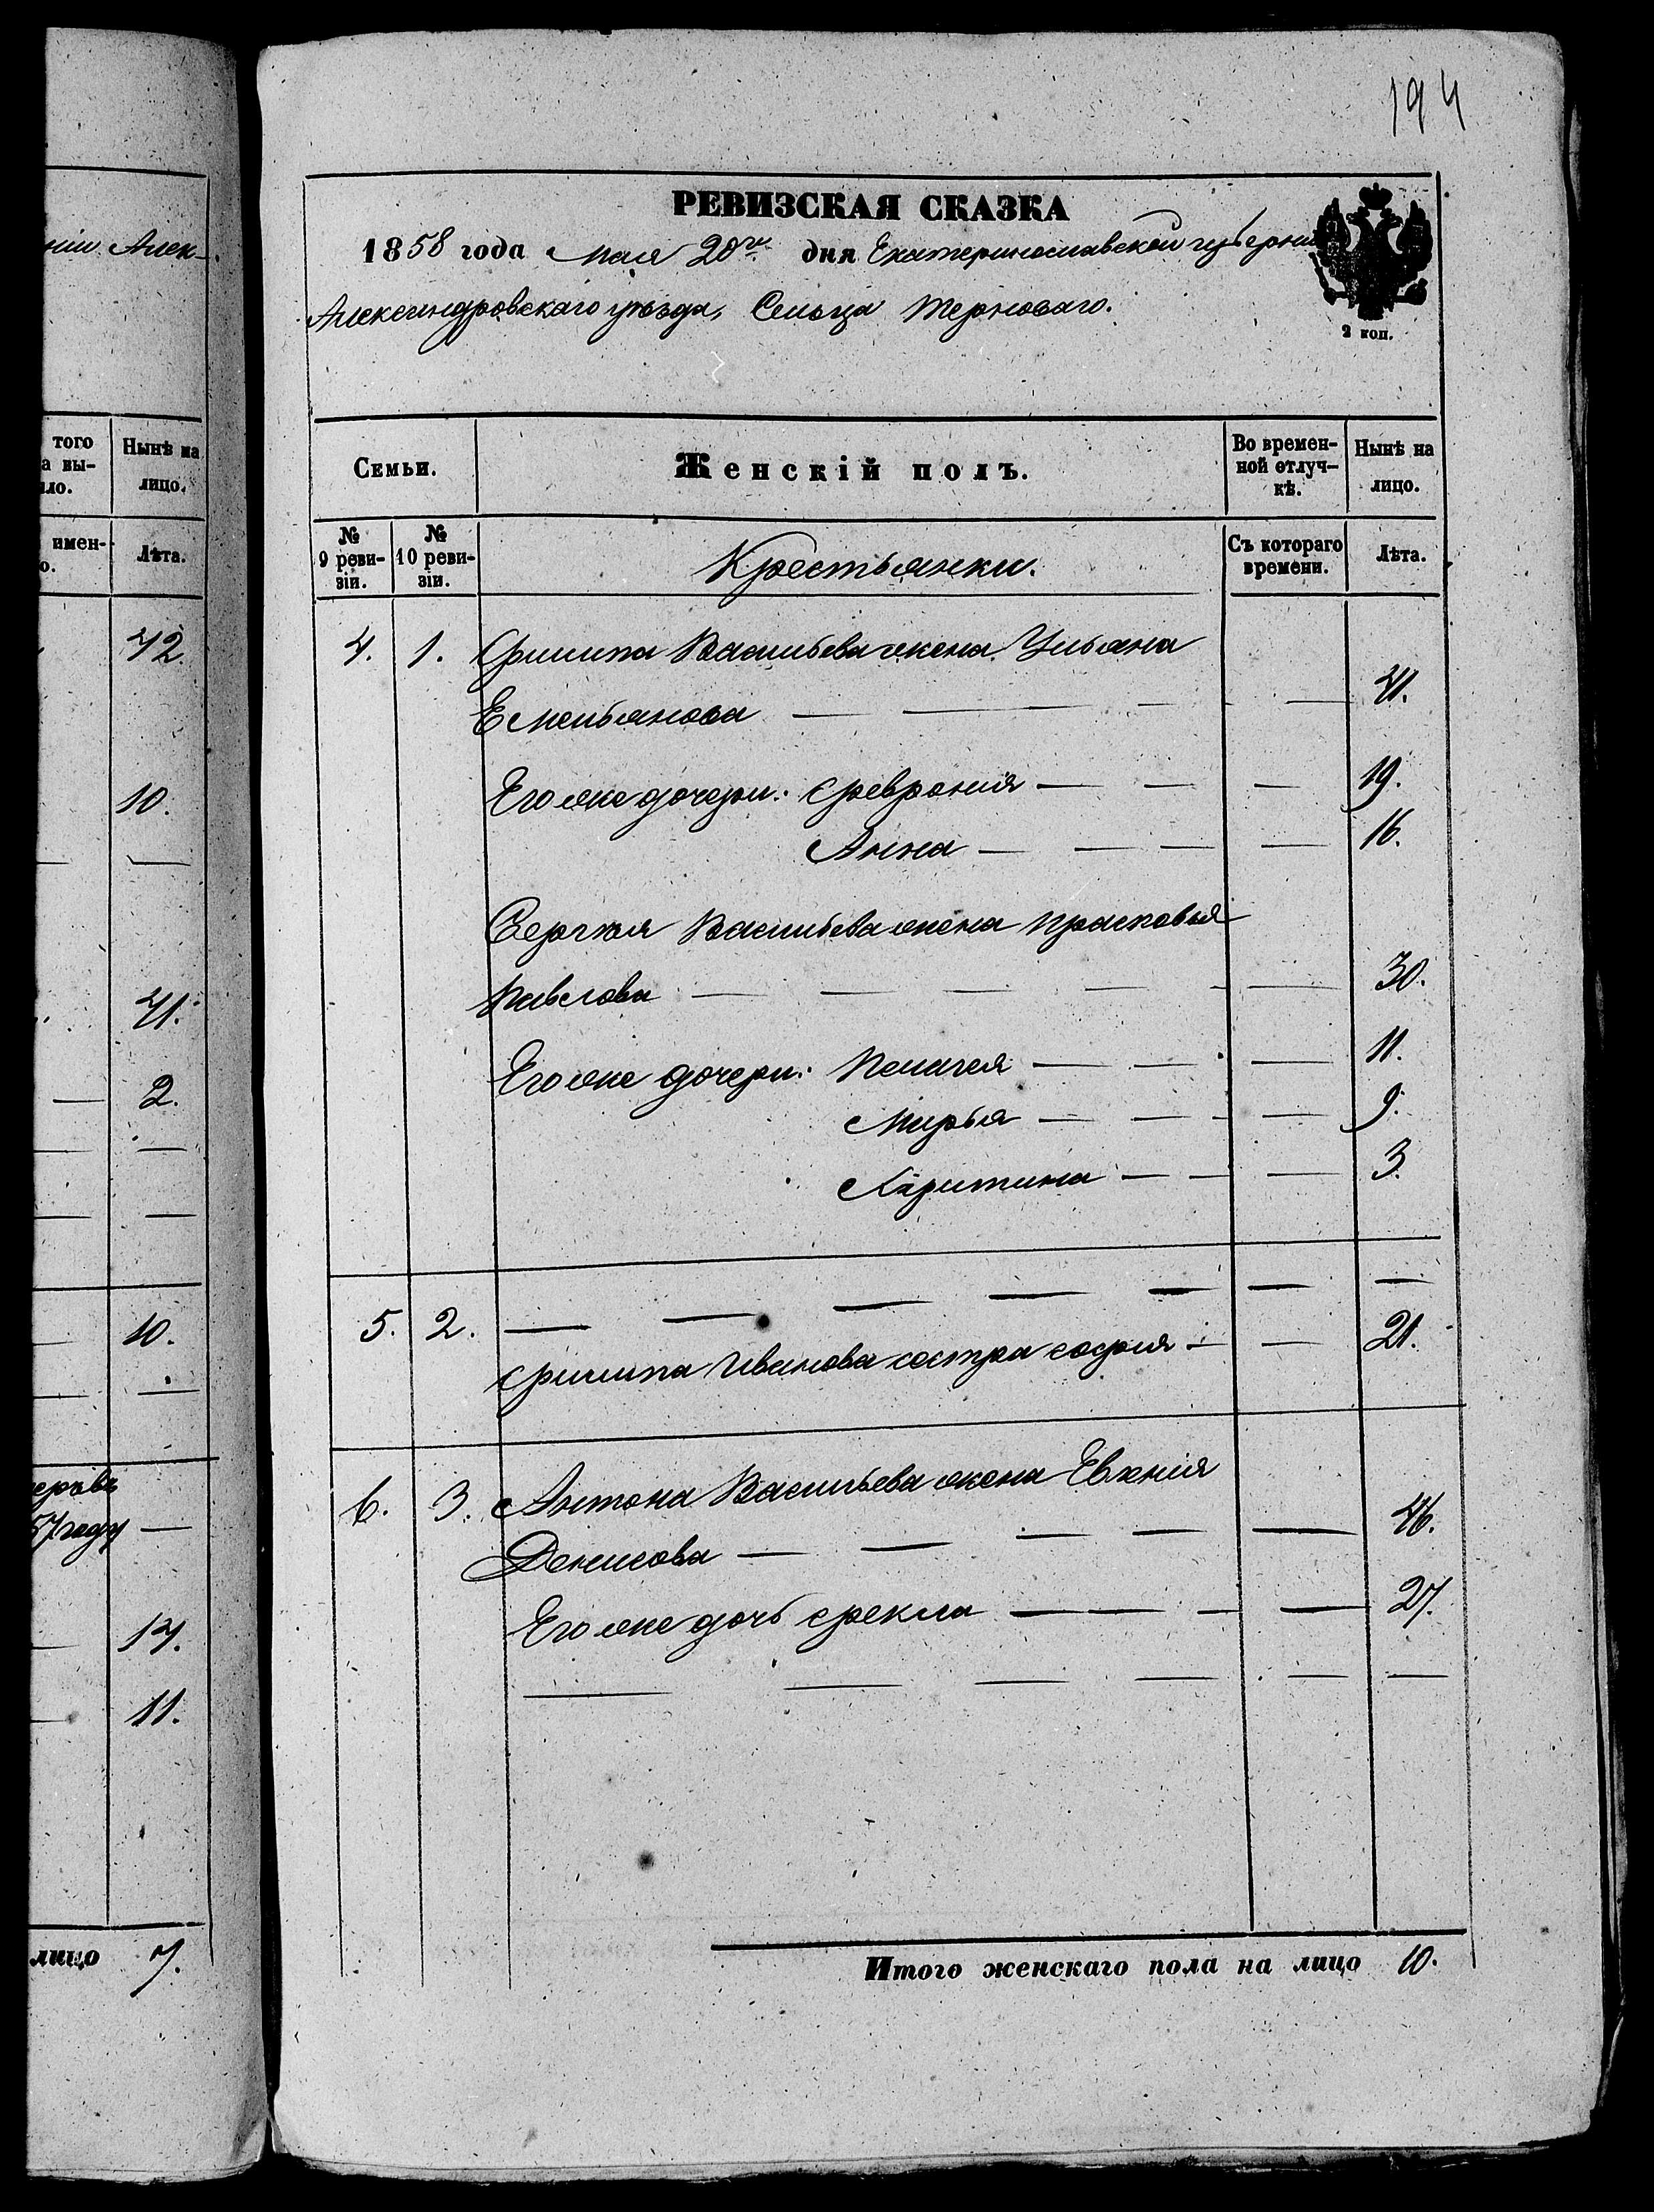 194
РЕВИЗСКАЯ СКАЗКА
1858 года мая 20го дня Екатеринославской губерніи
Александровскаго уѣзда, Сельца Терноваго.
2 коп.
ніи Алек-
того
а вы-
ло.
Нынѣ на
лицо.
имен-
о.
Лѣта.
42.
10.
41.
2.
10.
57 году
14.
11.
лицо 7.
Семьи.
Женскій полъ.
Во времен-
ной отлуч-
кѣ.
Нынѣ на
лицо.
№
9 реви-
зіи.
№
10 реви-
зіи.
Крестьянки.
Съ котораго
времени.
Лѣта.
4. 1. Филипа Васильева жена Ульяна
Емельянова 41.
Его же дочери: Феврония 19.
Анна 16.
Сергѣя Васильева жена Прасковья
Павлова 30.
Его же дочери: Пелагея 11.
Марья 9.
Харитина 3.
5. 2.
Филипа Иванова сестра София 21.
6. 3. Антона Васильева жена Евхнія
Денисова 46.
Его же дочь Фекла 27.
Итого женскаго пола на лицо 10.